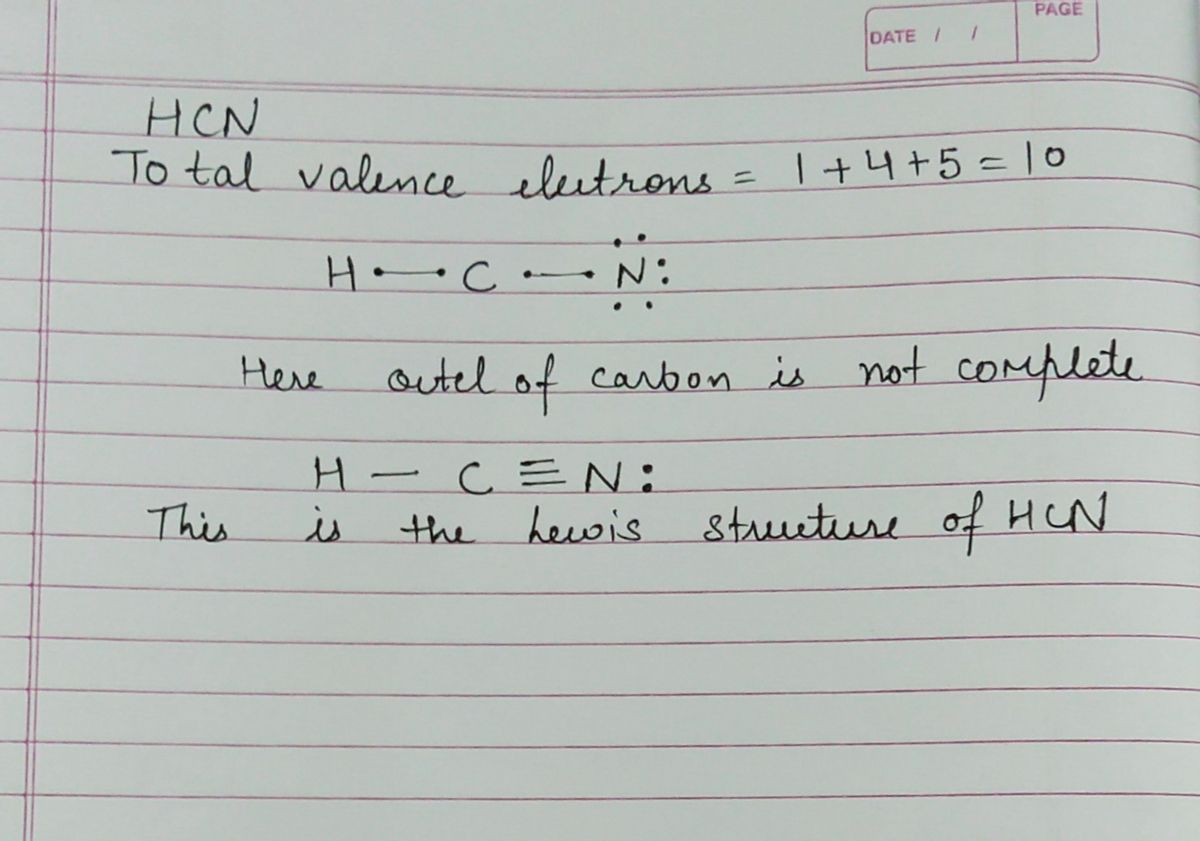 PAGE
DATE / /
HCN
Total valence electrons = 1+4+5=10
H — C — N:
Here octel of carbon is not complete
H — C ≡ N:
This is the Lewis structure of HCN